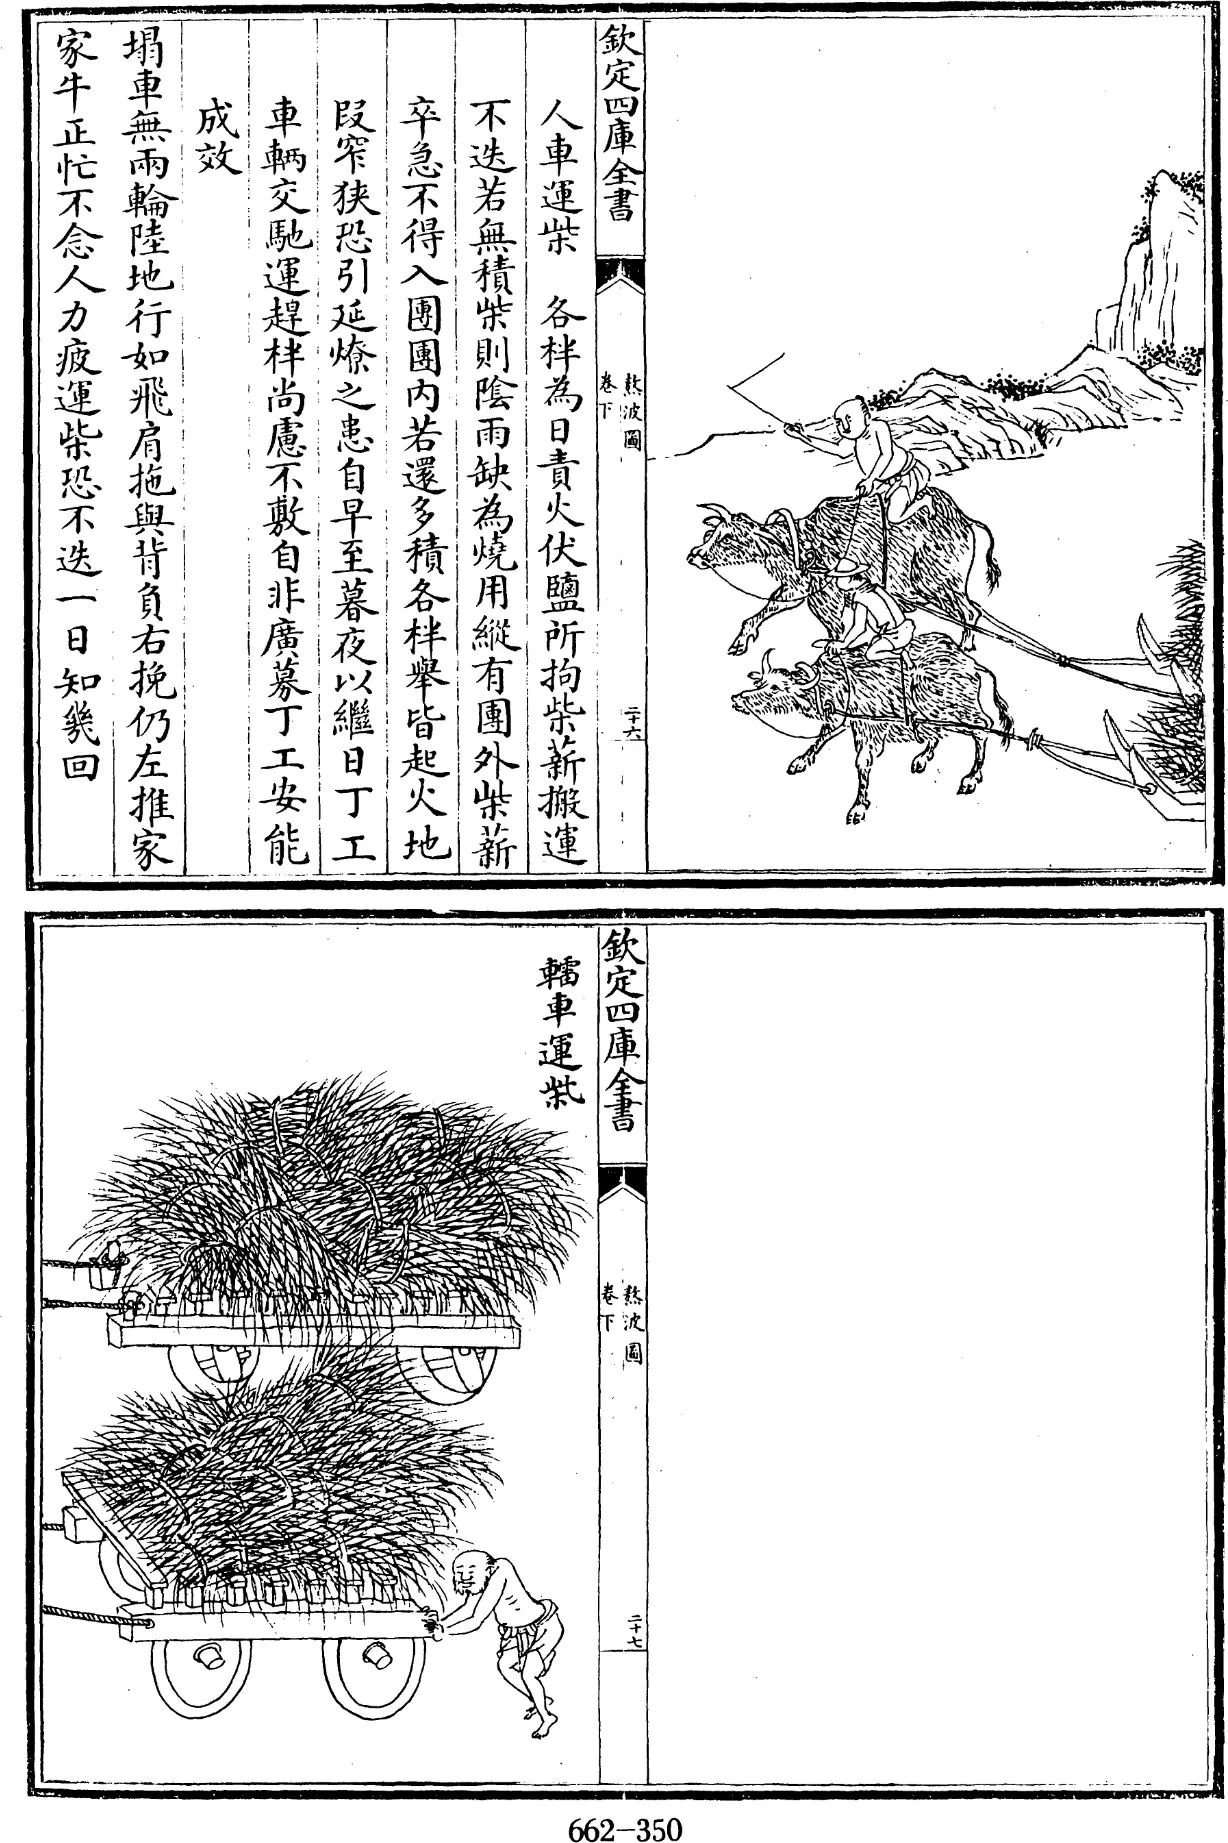 欽定四庫全書
熬波圖
卷下
二十六
人車運柴　各柈為日責火伏鹽所拘柴薪搬運
不迭若無積柴則陰雨缺為燒用縱有團外柴薪
卒急不得入團團内若還多積各柈舉皆起火地
段窄狹恐引延燎之患自早至暮夜以繼日丁工
車輛交馳運趕柈尚慮不敷自非廣募丁工安能
成效
塌車無兩輪陸地行如飛肩拖與背負右挽仍左推家
家牛正忙不念人力疲運柴恐不迭一日知幾回
欽定四庫全書
熬波圖
卷下
二十七
轜車運柴
662-350